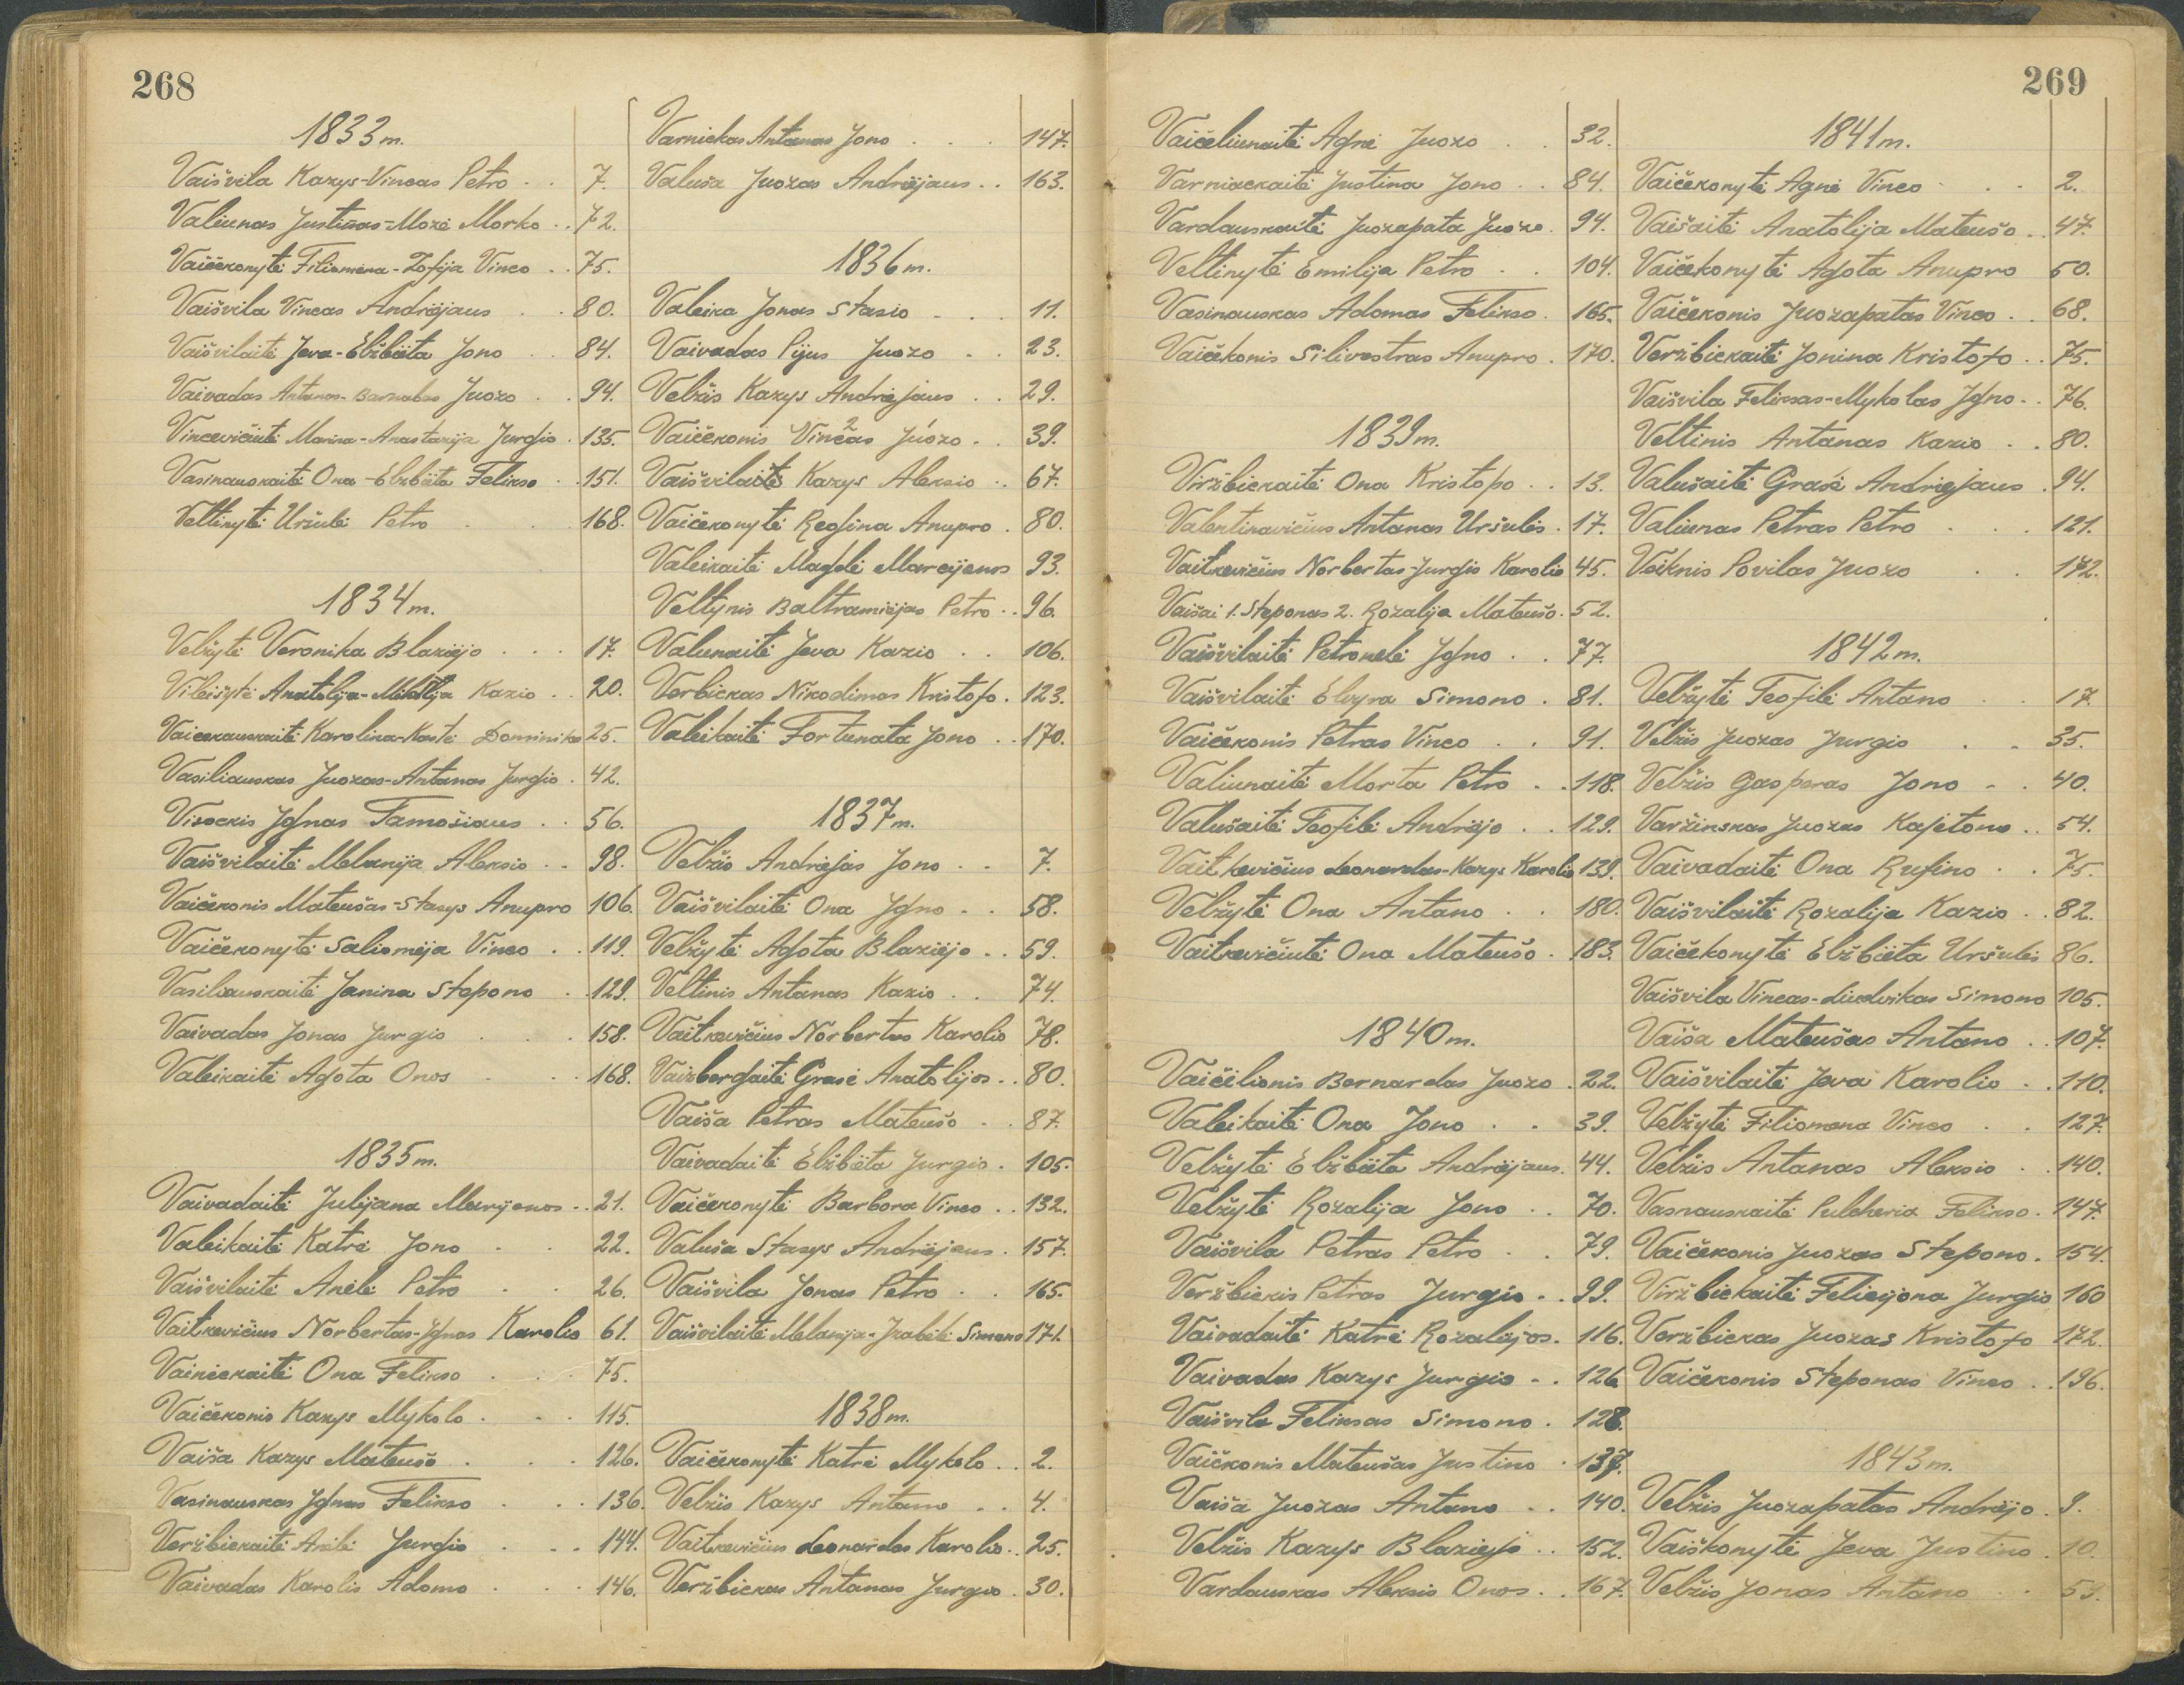 268
1833 m.
Vaišvila Kazys-Vincas Petro . . 7.
Valiunas Justinas-Mozė Morko . . 72.
Vaičekonytė Filiomena-Zofija Vinco . . 75.
Vaišvila Vincas Andriėjaus . . 80.
Vaišvilaitė Jeva-Elžbiėta Jono . . 84.
Vaivadas Antanas-Barnabas Juozo . . 94.
Vincevičiutė Marina-Anastazija Jurgio . 135.
Vasinauskaitė Ona-Elzbiėta Felikso . . 151.
Veltinytė Uršulė Petro . . . 168.
1834 m.
Velžytė Veronika Blaziėjo . . . 17.
Vileišytė Anatolija-Mikolija Kazio . . 20.
Vaicekauskaitė Karolina-Kastė Dominiko 25.
Vasiliauskas Juozas-Antanas Jurgio . 42.
Visockis Jgnas Tamošiaus . . 56.
Vaišvilaitė Melanija Aleksio . . 98.
Vaičekonis Mateušas-Stasys Anupro 106.
Vaičekonytė Saliomėja Vinco . . 119.
Vasiliauskaitė Janina Stepono . . 129.
Vaivadas Jonas Jurgio . . . 158.
Valeikaitė Agota Onos . . . 168.
1835 m.
Vaivadaitė Julijana Marijonos . . 21.
Valeikaitė Katrė Jono . . 22.
Vaišvilaitė Anėlė Petro . . 26.
Vaitkevičius Norbertas-Jgnas Karolio 61.
Vainickaitė Ona Felikso . . . 75.
Vaičekonis Kazys Mykolo . . . 115.
Vaiša Kazys Mateušo . . . 126.
Vasinauskas Jgnas Felikso . . . 136.
Veržbickaitė Anėlė Jurgio . . . 144.
Vaivadas Karolis Adomo . . . 146.
Varnickas Antanas Jono . . . 147.
Valuša Juozas Andriėjaus . . 163.
1836 m.
Valeika Jonas Stasio . . . 11.
Vaivadas Pijus Juozo . . 23.
Velžis Kazys Andriėjaus . . 29.
Vaičekonis Vincas Juozo . . 39.
Vaišvilaitis Kazys Aleksio . . 67.
Vaičekonytė Regina Anupro . 80.
Valeikaitė Magdė Marcijonos 93.
Veltynis Baltramiėjas Petro . . 96.
Valiunaitė Jeva Kazio . . 106.
Verbickas Nikodimas Kristofo . 123.
Valeikaitė Fortunata Jono . . 170.
1837 m.
Velžis Andriejas Jono . . 7.
Vaišvilaitė Ona Jgno . . 58.
Velžytė Agota Blaziėjo . . 59.
Veltinis Antanas Kazio . . 74.
Vaitkevičius Norbertas Karolio 78.
Vaizbergaitė Grasė Anatolijos . . 80.
Vaiša Petras Mateušo . . 87.
Vaivadaitė Elžbiėta Jurgio . 105.
Vaičekonytė Barbora Vinco . . 132.
Valuša Stasys Andriėjaus . 157.
Vaišvila Jonas Petro . . 165.
Vaišvilaitė Melanija-Izabėlė Simono 171.
1838 m.
Vaičekonytė Katrė Mykolo . . 2.
Velžis Kazys Antano . . 4.
Vaitkevičius Leonardas Karolio . . 25.
Veržbickas Antanas Jurgio . 30.
269
Vaičeliunaitė Agnė Juozo . . 32.
Varniackaitė Justina Jono . . 84.
Vardauskaitė Juozapata Juozo . 94.
Veltinytė Emilija Petro . . 104.
Vasinauskas Adomas Felikso . 165.
Vaičekonis Silivestras Anupro . 170.
1839 m.
Viržbickaitė Ona Kristopo . . 13.
Valentinavičius Antanas Uršulės . 17.
Vaitkevičius Norbertas-Jurgis Karolio 45.
Vaišai 1. Steponas 2. Rozalija Mateušo . 52.
Vaišvilaitė Petronelė Jgno . . 77.
Vaišvilaitė Elvyra Simono . 81.
Vaičekonis Petras Vinco . . 91.
Valiunaitė Morta Petro . . 118.
Valušaitė Teofilė Andriėjo . . 129.
Vaitkevičius Leonardas-Kazys Karolio 139.
Velžytė Ona Antano . . 180.
Vaitkevičiutė Ona Mateušo . 183.
1840 m.
Vaičėlionis Bernardas Juozo . 22.
Valeikaitė Ona Jono . . 39.
Velžytė Elžbiėta Andriėjaus . 44.
Velžytė Rozalija Jono . . 70.
Vaišvila Petras Petro . . 79.
Veržbickis Petras Jurgio . . 99.
Vaivadaitė Katrė Rozalijos . 116.
Vaivadas Kazys Jurgio . . 126.
Vaišvila Feliksas Simono . 128.
Vaičkonis Mateušas Justino . 137.
Vaiša Juozas Antano . . 140.
Velžis Kazys Blaziejo . . 152.
Vardauskas Aleksis Onos . . 167.
1841 m.
Vaičekonytė Agnė Vinco . . . 2.
Vaišaitė Anatolija Mateušo . . 47.
Vaičekonytė Agota Anupro 50.
Vaičekonis Juozapatas Vinco . . 68.
Veržbickaitė Jonina Kristofo . . 75.
Vaišvila Feliksas-Mykolas Jgno . . 76.
Veltinis Antanas Kazio . . 80.
Valušaitė Grasė Andriejaus . 94.
Valiunas Petras Petro . . . 121.
Veiknis Povilas Juozo . . 172.
1842 m.
Velžytė Teofilė Antano . . 17.
Velžis Juozas Jurgio . . 35.
Velžis Gasparas Jono . . 40.
Varžinskas Juozas Kajetono . . 54.
Vaivadaitė Ona Rufino . . 75.
Vaišvilaitė Rozalija Kazio . . 82.
Vaičekonytė Elžbiėta Uršulės 86.
Vaišvila Vincas-Liudvikas Simono 105.
Vaiša Mateušas Antano . . 107.
Vaišvilaitė Jeva Karolio . . 110.
Velžytė Filiomena Vinco . . 127.
Velžis Antanas Aleksio . . 140.
Vasnauskaitė Pulcheria Felikso . 147.
Vaičekonis Juozas Stepono . 154.
Viržbickaitė Felicijona Jurgio 160
Veržbickas Juozas Kristofo 172.
Vaičekonis Steponas Vinco . . 196.
1843 m.
Velžis Juozapatas Andriejo . 9.
Vaiškonytė Jeva Justino . 10.
Velžis Jonas Antano . . 59.